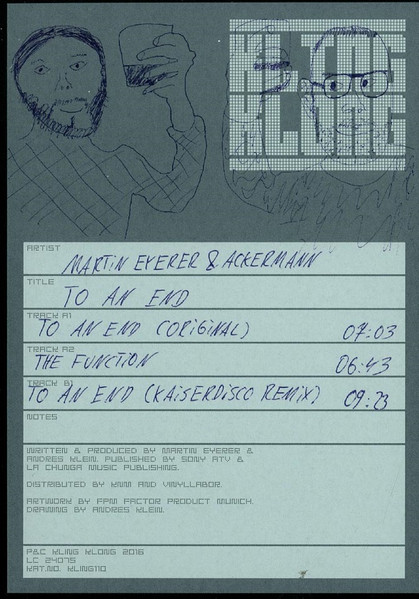 KLING
KLONG
ARTIST
MARTIN EYERER & ACKERMANN
TITLE
TO AN END
TRACK A1
TO AN END (ORIGINAL) 07:03
TRACK A2
THE FUNCTION 06:43
TRACK B1
TO AN END (KAISERDISCO REMIX) 09:23
NOTES
WRITTEN & PRODUCED BY MARTIN EYERER &
ANDRES KLEIN. PUBLISHED BY SONY ATV &
LA CHUNGA MUSIC PUBLISHING.
DISTRIBUTED BY KNM AND VINYLLABOR.
ARTWORK BY FPM FACTOR PRODUCT MUNICH.
DRAWING BY ANDRES KLEIN.
P&C KLING KLONG 2016
LC 24075
KAT.NO. KLING110